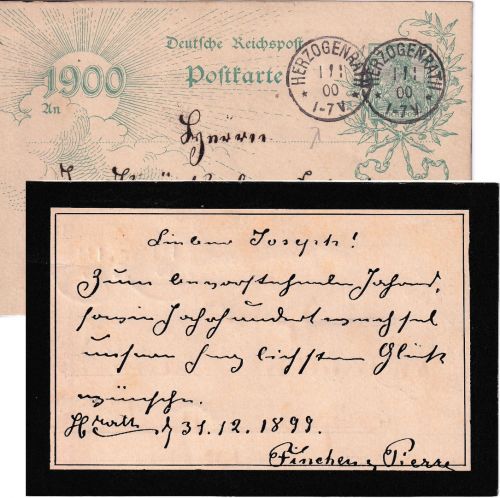 Deutsche Reichspost
1900
Postkarte
An
HERZOGENRATH
1 1
00
* 1-7V. *
HERZOGENRATH
1 1
00
* 1-7V. *
Herrn
Lieber Joseph!
Zum bevorstehenden Jahres,
sowie Jahrhundertwechsel
unsere herzlichsten Glück
wünsche.
H'rath d 31.12.1899.
Finchen u Pierre